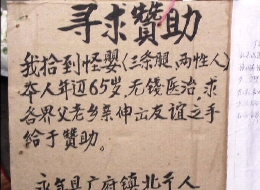 寻求赞助
我拾到怪婴(三条腿、两性人)
本人年迈65岁无钱医治,求
各界父老乡亲伸出友谊之手
给于赞助。
永年县广府镇北千人